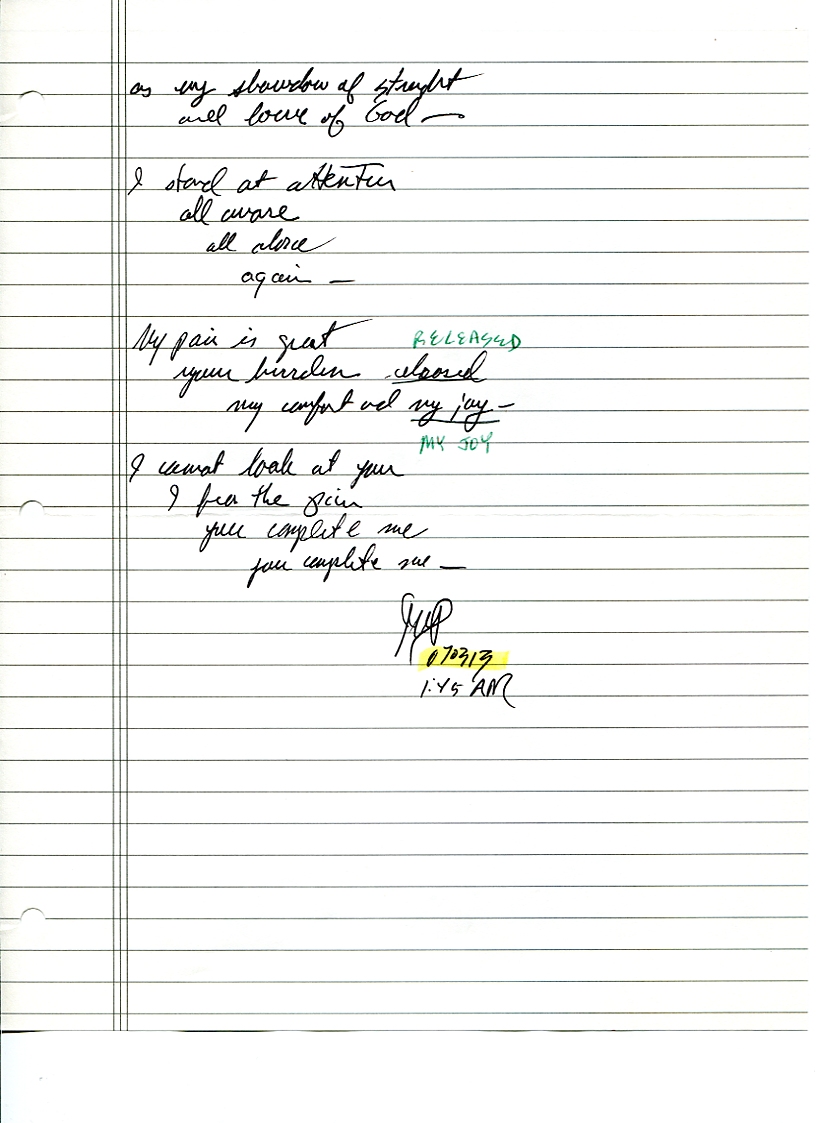 as my shadow of strenght
and love of God —
I stand at attention
all aware
all alone
again —
My pain is great RELEASED
your burden
my comfort and my joy —
MY JOY
I cannot look at you
I fear the pain
you complete me
you complete me —
070313
1:45 AM